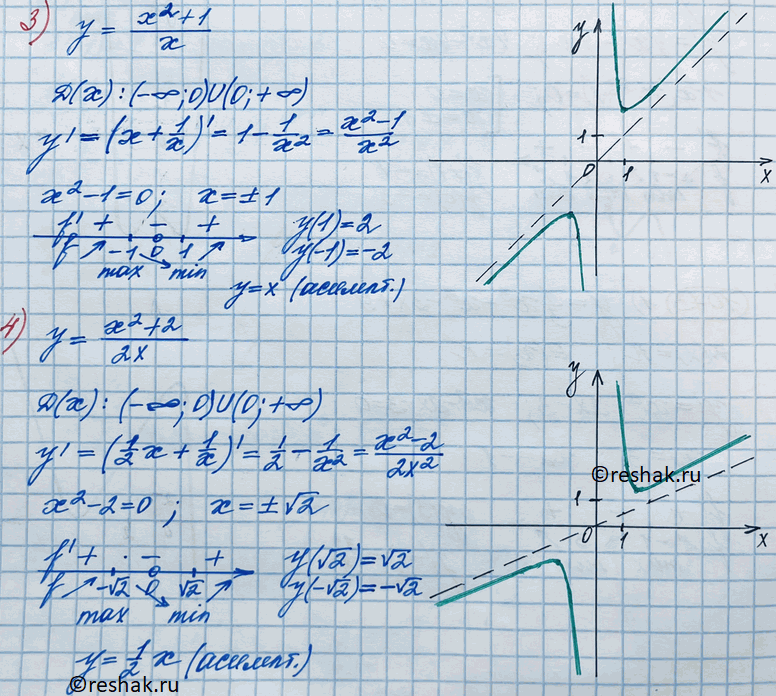 3) y = (x²+1)/x
D(x): (-∞; 0)U(0; +∞)
y' = (x + 1/x)' = 1 - 1/x² = (x²-1)/x²
x²-1=0; x=±1
f' + - +
f -1 0 1
max min
y(1)=2
y(-1)=-2
y=x (асимпт.)
y
1
0 1 x
4) y = (x²+2)/2x
D(x): (-∞; 0)U(0; +∞)
y' = (1/2 x + 1/x)' = 1/2 - 1/x² = (x²-2)/2x²
x²-2=0; x=±√2
f' + - +
f -√2 0 √2
max min
y(√2)=√2
y(-√2)=-√2
y = 1/2 x (асимпт.)
y
1
0 1 x
©reshak.ru
©reshak.ru